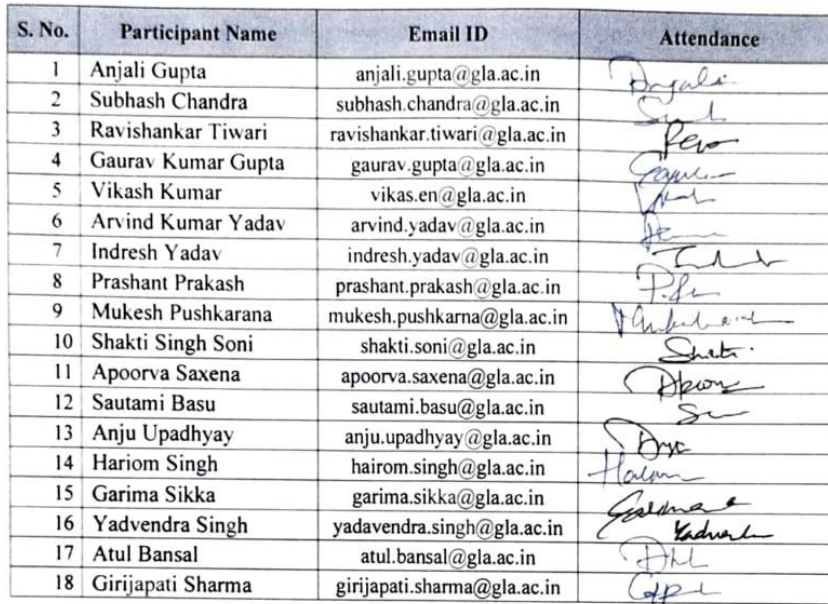 S. No. Participant Name Email ID Attendance
1 Anjali Gupta anjali.gupta@gla.ac.in Anjali
2 Subhash Chandra subhash.chandra@gla.ac.in
3 Ravishankar Tiwari ravishankar.tiwari@gla.ac.in
4 Gaurav Kumar Gupta gaurav.gupta@gla.ac.in
5 Vikash Kumar vikas.en@gla.ac.in
6 Arvind Kumar Yadav arvind.yadav@gla.ac.in
7 Indresh Yadav indresh.yadav@gla.ac.in
8 Prashant Prakash prashant.prakash@gla.ac.in
9 Mukesh Pushkarana mukesh.pushkarna@gla.ac.in
10 Shakti Singh Soni shakti.soni@gla.ac.in Shakti
11 Apoorva Saxena apoorva.saxena@gla.ac.in
12 Sautami Basu sautami.basu@gla.ac.in
13 Anju Upadhyay anju.upadhyay@gla.ac.in
14 Hariom Singh hairom.singh@gla.ac.in
15 Garima Sikka garima.sikka@gla.ac.in
16 Yadvendra Singh yadavendra.singh@gla.ac.in
17 Atul Bansal atul.bansal@gla.ac.in
18 Girijapati Sharma girijapati.sharma@gla.ac.in